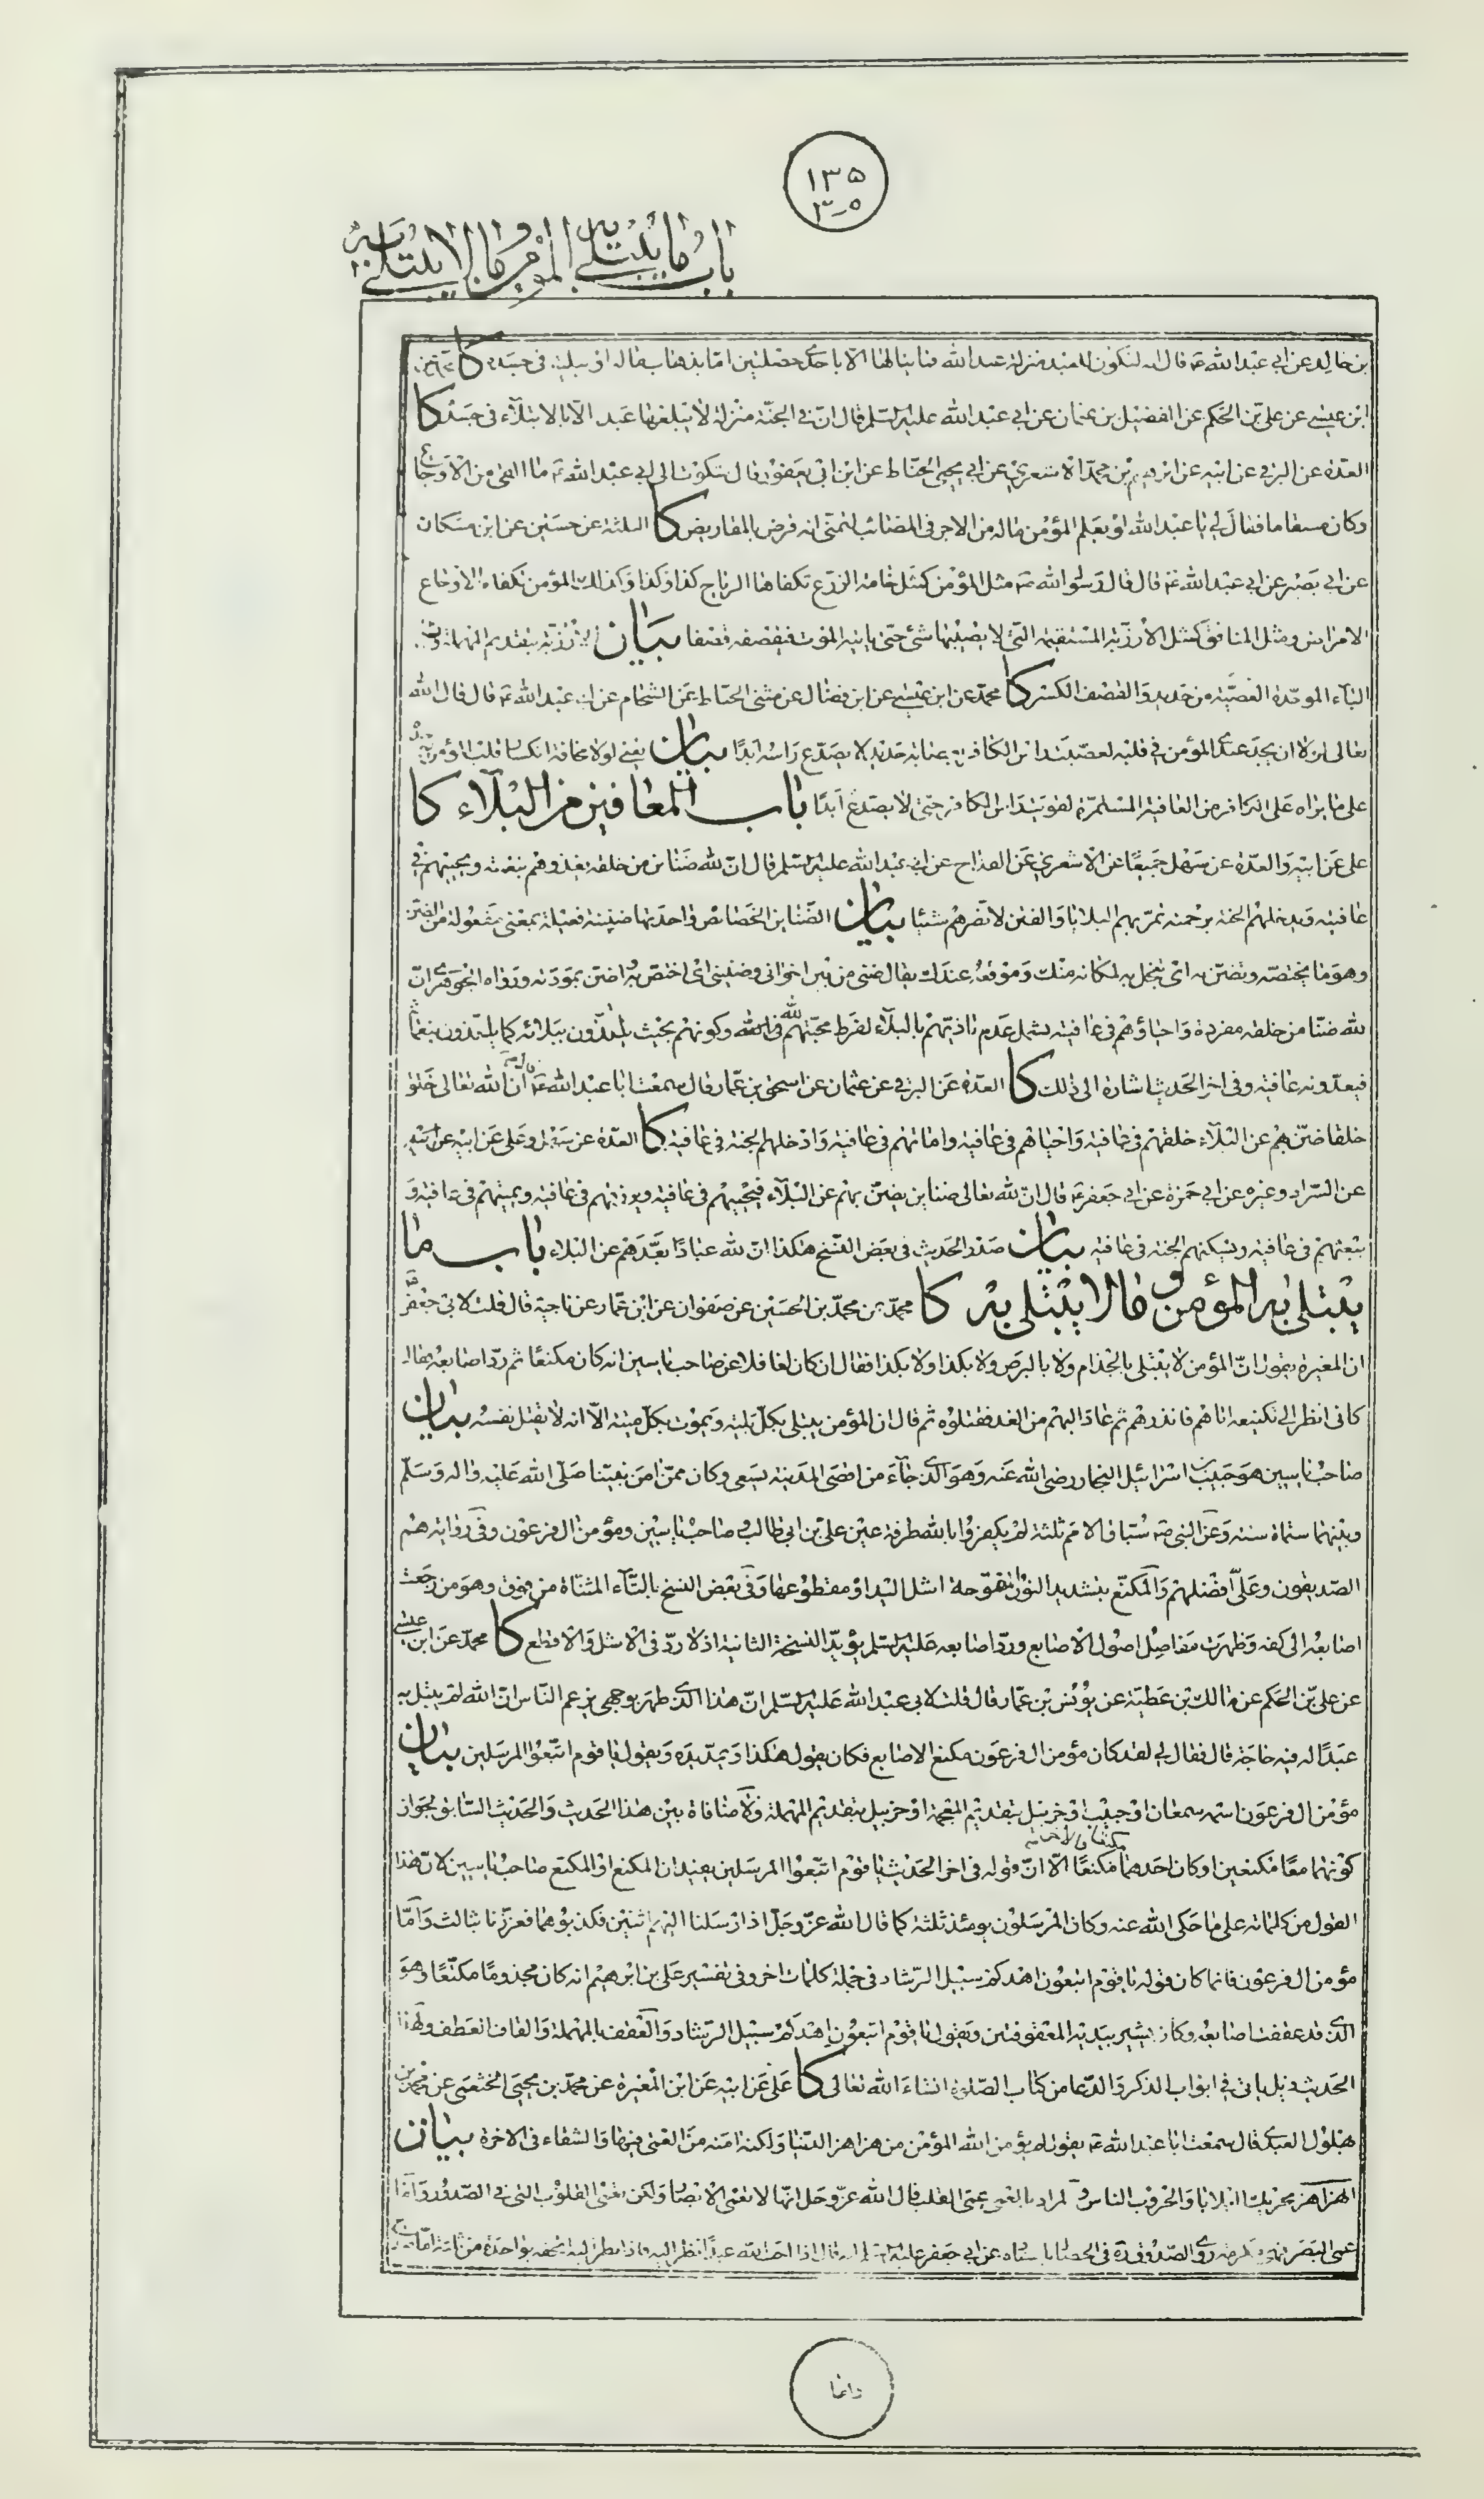 ١٣٥
٣-٥
باب ما يبتلى به المؤمن و ما لا يبتلى به
بن خالد عن ابي عبد الله ع قال انه ليكون للعبد منزلة عند الله فما ينالها الا باحدى خصلتين اما بذهاب ماله او ببلية في جسده كا
ابن عيسى عن علي بن الحكم عن الفضيل بن عثمان عن ابي عبد الله عليه السلم قال ان في الجنة منزلة لا يبلغها عبد الا بالابتلاء في جسده كا
العدة عن البرقي عن ابيه عن ابرهيم بن محمد الاشعري عن ابي يحيى الحناط عن ابن ابي يعفور قال شكوت الى ابي عبد الله ع ما القى من الاوجاع
وكان مسقاما فقال لي يا عبد الله لو يعلم المؤمن ما له من الاجر في المصائب لتمنى انه قرض بالمقاريض كا الثلثة عن حسين عن ابن مسكان
عن ابي بصير عن ابي عبد الله ع قال قال رسول الله ص مثل المؤمن كمثل خامة الزرع تكفاها الرياح كذا وكذا وكذلك المؤمن تكفاه الاوجاع
الامراض ومثل المنافق كمثل الارزبة المستقيمة التي لا يصيبها شئ حتى ياتيه الموت فيقصفه قصفا بيان الارزبة بتقديم المهملة و
الباء الموحدة العصية من حديد والقصف الكسر كا محمد عن ابن عيسى عن ابن فضال عن مثنى الحناط عن الشحام عن ابي عبد الله ع قال قال الله
تعالى لولا ان يجد عبدي المؤمن في قلبه لعصبت راس الكافر بعصابة حديد لا يصدع راسه ابدا بيان يعني لولا مخافة انكسار قلب المؤمن
على ما يراه على الكافر من العافية المستمرة لقويت راس الكافر حتى لا يصدع ابدا باب المعافين من البلاء كا
علي عن ابيه والعدة عن سهل جميعا عن الاشعري عن القداح عن ابي عبد الله عليه السلم قال ان لله ضنائن من خلقه يغذوهم بنعمته ويحييهم في
عافيته ويدخلهم الجنة برحمته تمر بهم البلايا والفتن لا تضرهم شيئا بيان الضنائن الخصائص واحدتها ضنينة فعيلة بمعنى مفعولة من الضن
وهو ما يختصه وتضن به اي تبخل به لمكانه منك وموقعه عندك يقال ضني من بين اخواني وضنيني اي اختص به واضن بمودته ورواه الجوهري ان
لله ضنا من خلقه مفردة واحياؤهم في عافية يشمل عدم تاذيهم بالبلاء لفرط محبتهم لله في الله وكونهم بحيث يلتذون ببلائه كما يلتذون بنعمائه
فيعدونه عافية وفي اخر الحديث اشارة الى ذلك كا العدة عن البرقي عن عثمان عن اسحق بن عمار قال سمعت ابا عبد الله ع قال ان الله تعالى خلق
خلقا ضن بهم عن البلاء خلقهم في عافية واحياهم في عافية واماتهم في عافية وادخلهم الجنة في عافية كا العدة عن سهل وعلي عن ابيه عن ابيه
عن السراد وغيره عن ابي حمزة عن ابي جعفر ع قال ان لله تعالى ضنائن يضن بهم عن البلاء فيحييهم في عافية ويرزقهم في عافية ويميتهم في عافية و
يبعثهم في عافية ويسكنهم الجنة في عافية بيان صدر الحديث في بعض النسخ هكذا ان لله عبادا يعدهم عن البلاء باب ما
يبتلى به المؤمن و ما لا يبتلى به كا محمد عن محمد بن الحسين عن صفوان عن ابن عمار عن ناجية قال قلت لابي جعفر ع
ان المغيرة يقول ان المؤمن لا يبتلى بالجذام ولا بالبرص ولا بكذا ولا بكذا فقال ان كان لغافلا عن صاحب ياسين انه كان مكنعا ثم رد اصابعه فقال
كاني انظر الى تكنيعه اتاهم فانذرهم ثم عاد اليهم من الغد فقتلوه ثم قال ان المؤمن يبتلى بكل بلية ويموت بكل ميتة الا انه لا يقتل نفسه بيان
صاحب ياسين هو حبيب اسرائيل النجار رضي الله عنه وهو الذي جاء من اقصى المدينة يسعى وكان ممن امن بنبينا صلى الله عليه واله وسلم
وبينهما ستماة سنة وعن النبي ص سباق الامم ثلثة لم يكفروا بالله طرفة عين علي بن ابي طالب و صاحب ياسين ومؤمن ال فرعون وفي رواية هم
الصديقون وعلي افضلهم والمكنع بتشديد النون المفتوحة اشل اليد او مقطوعها وفي بعض النسخ بالتاء المثناة من فوق وهو من رجعت
اصابعه الى كفه وظهرت مفاصل اصول الاصابع ورد اصابعه عليه السلم يؤيد النسخة الثانية اذ لا رد في الاشل والاقطع كا محمد عن ابن عيسى
عن علي بن الحكم عن مالك بن عطية عن يونس بن عمار قال قلت لابي عبد الله عليه السلم ان هذا الذي ظهر بوجهي يزعم الناس ان الله لم يبتل به
عبدا له فيه حاجة قال فقال لي لقد كان مؤمن ال فرعون مكنع الاصابع فكان يقول هكذا ويمد يده ويقول يا قوم اتبعوا المرسلين بيان
مؤمن ال فرعون اسمه سمعان او حبيب او خربيل بتقديم المعجمة او حزبيل بتقديم المهملة ولا منافاة بين هذا الحديث والحديث السابق لجواز
كونهما معا مكنعين او كان احدهما مكنعا الا ان قوله في اخر الحديث يا قوم اتبعوا المرسلين يفيد ان المكنع او المكتع صاحب ياسين لان هذا
القول من كلماته على ما حكى الله عنه وكان المرسلون يومئذ ثلثة كما قال الله عز وجل اذ ارسلنا اليهم اثنين فكذبوهما فعززنا بثالث واما
مؤمن ال فرعون فانما كان قوله يا قوم اتبعون اهدكم سبيل الرشاد في جملة كلمات اخر وفي تفسير علي بن ابرهيم انه كان مجذوما مكنعا وهو
الذي قد عقفت اصابعه وكان يشير بيديه المعقوفتين ويقول يا قوم اتبعون اهدكم سبيل الرشاد والعقف بالمهملة والقاف العطف ولهذا
الحديث ذيل ياتي في ابواب الذكر والدعا من كتاب الصلوة انشاء الله تعالى كا علي عن ابيه عن ابن المغيرة عن محمد بن يحيى الخثعمي عن محمد بن
بهلول العبدي قال سمعت ابا عبد الله ع يقول لم يؤمن الله المؤمن من هزاهز الدنيا ولكنه امنه من العمى فيها والشقاء في الاخرة بيان
الهزاهز تحريك البلايا والحروب الناس و المراد بالعمى عمى القلب قال الله عز وجل انها لا تعمى الابصار ولكن تعمى القلوب التي في الصدور واما
عمى البصر الصدوق ره في الخصال باسناده عن ابي جعفر عليه السلم انه قال اذا احب الله عبدا نظر اليه فاذا نظر اليه اتحفه بواحدة من ثلثة اما